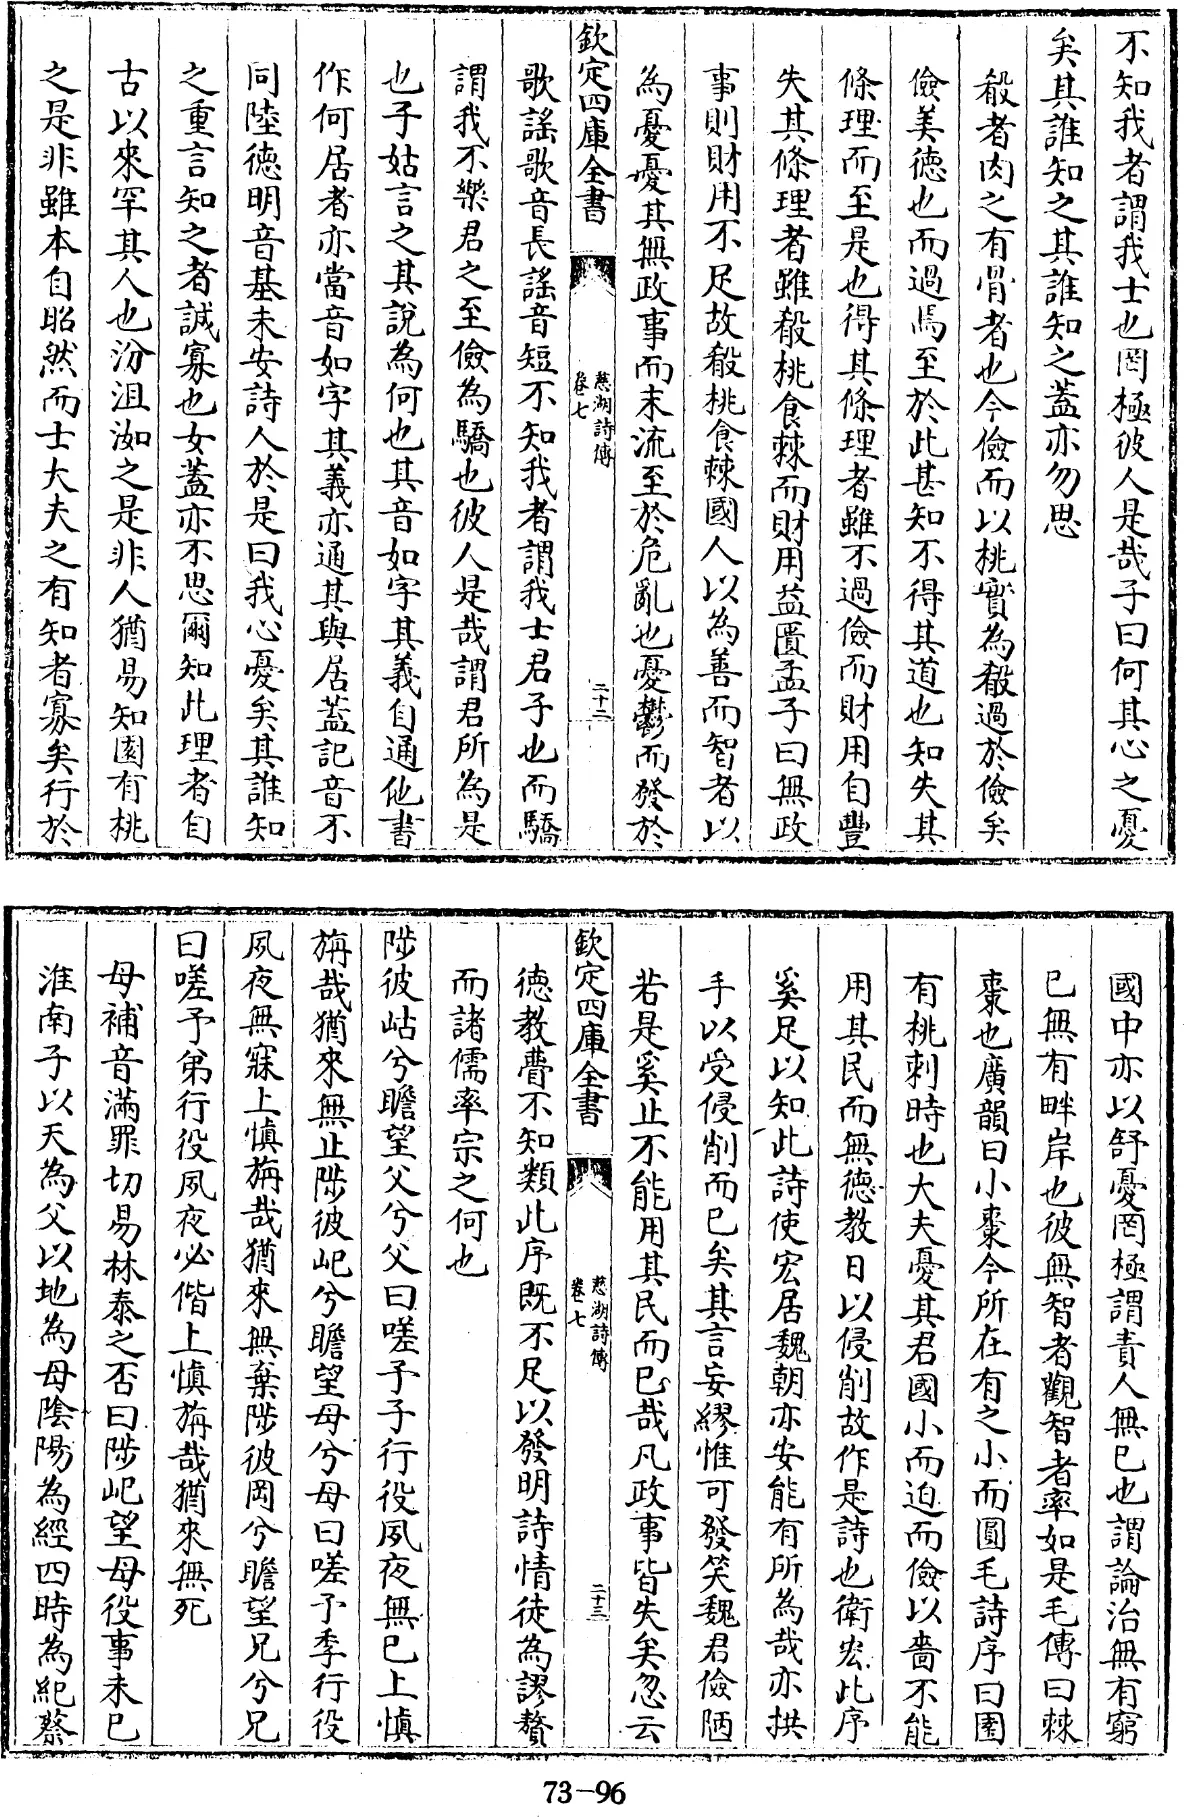 不知我者謂我士也罔極彼人是哉子曰何其心之憂
矣其誰知之其誰知之蓋亦勿思
殽者肉之有骨者也今儉而以桃實為殽過於儉矣
儉美德也而過焉至於此甚知不得其道也知失其
條理而至是也得其條理者雖不過儉而財用自豐
失其條理者雖殽桃食棘而財用益匱孟子曰無政
事則財用不足故殽桃食棘國人以為善而智者以
為憂憂其無政事而末流至於危亂也憂鬱而發於
欽定四庫全書
慈湖詩傳
卷七
二十二
歌謡歌音長謡音短不知我者謂我士君子也而驕
謂我不樂君之至儉為驕也彼人是哉謂君所為是
也子姑言之其説為何也其音如字其義自通他書
作何居者亦當音如字其義亦通其與居蓋記音不
同陸徳明音基未安詩人於是曰我心憂矣其誰知
之重言知之者誠寡也女蓋亦不思爾知此理者自
古以來罕其人也汾沮洳之是非人猶易知園有桃
之是非雖本自昭然而士大夫之有知者寡矣行於
國中亦以舒憂罔極謂責人無已也謂論治無有窮
已無有畔岸也彼無智者觀智者率如是毛傳曰棘
棗也廣韻曰小棗今所在有之小而圓毛詩序曰園
有桃刺時也大夫憂其君國小而迫而儉以嗇不能
用其民而無德教日以侵削故作是詩也衛宏此序
奚足以知此詩使宏居魏朝亦安能有所為哉亦拱
手以受侵削而已矣其言妄繆惟可發笑魏君儉陋
若是奚止不能用其民而已哉凡政事皆失矣忽云
欽定四庫全書
慈湖詩傳
卷七
二十三
德教瞢不知類此序既不足以發明詩情徒為謬贅
而諸儒率宗之何也
陟彼岵兮瞻望父兮父曰嗟予子行役夙夜無已上慎
旃哉猶來無止陟彼屺兮瞻望母兮母曰嗟予季行役
夙夜無寐上慎旃哉猶來無棄陟彼岡兮瞻望兄兮兄
曰嗟予弟行役夙夜必偕上慎旃哉猶來無死
母補音滿罪切易林泰之否曰陟屺望母役事未已
淮南子以天為父以地為母陰陽為經四時為紀蔡
73-96